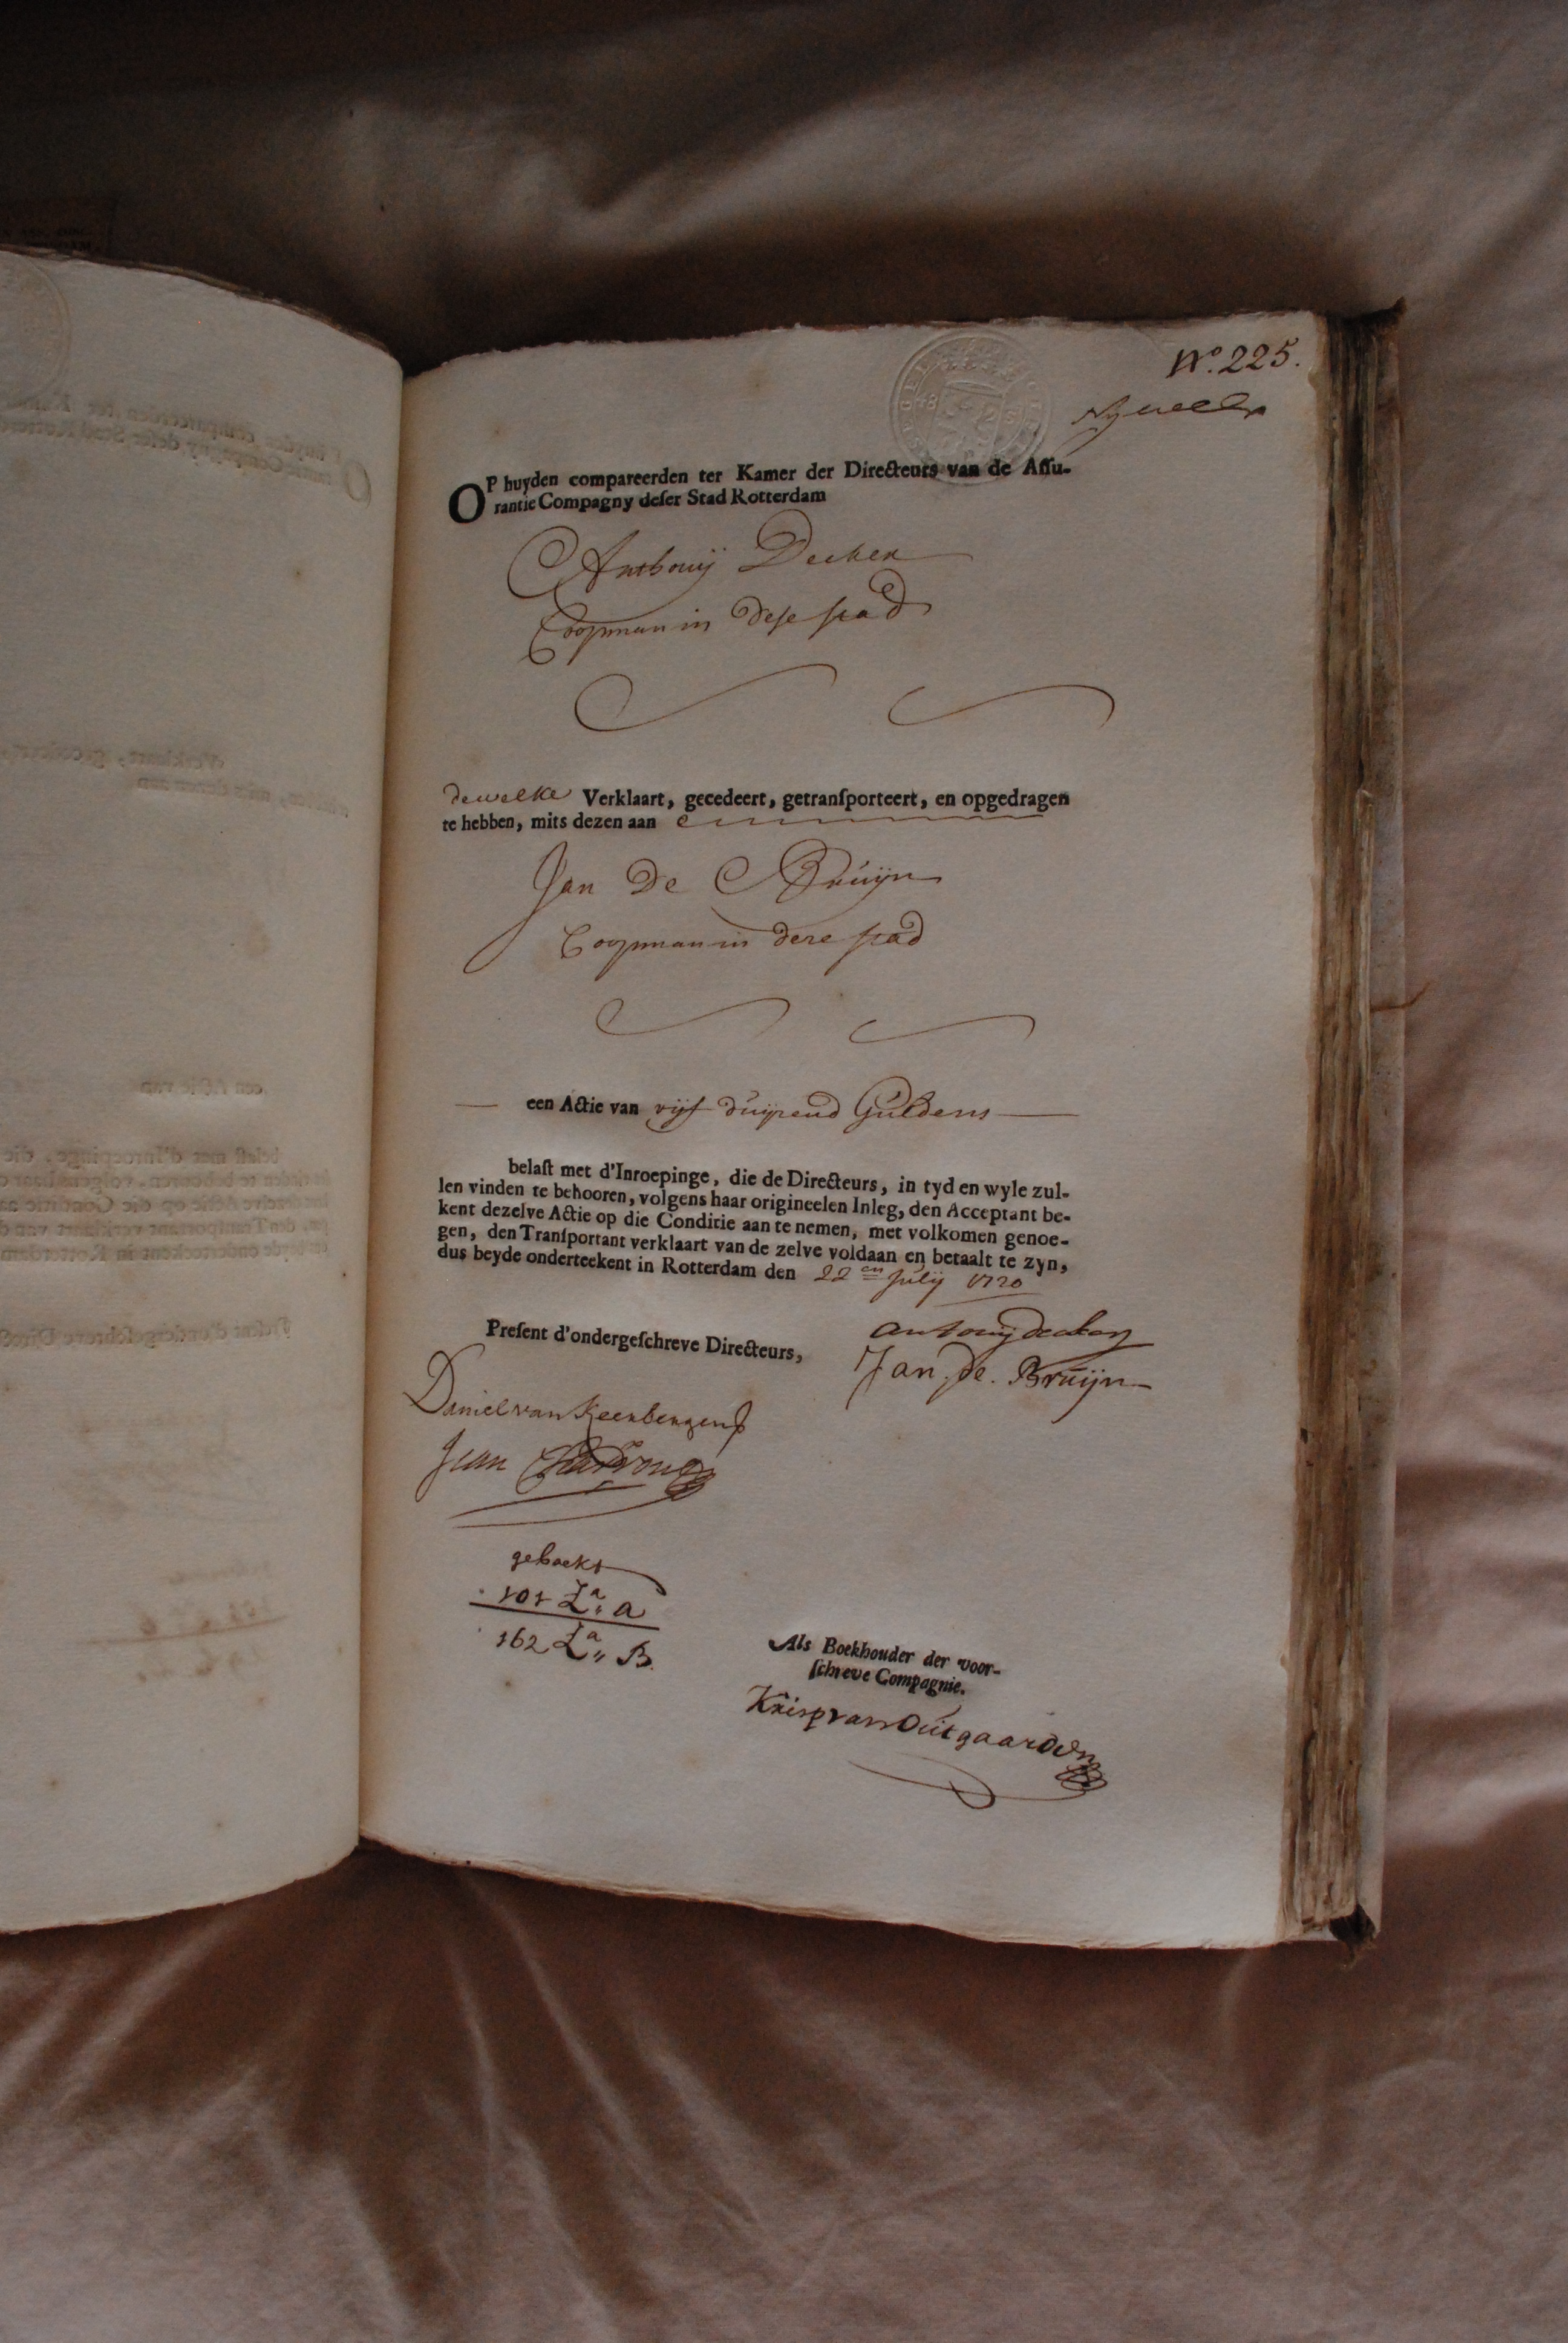 No. 225.
OP huyden compareerden ter Kamer der Directeurs van de Assu-
rantie Compagny deser Stad Rotterdam
Anthonij Decker
Coopman in dese stad
dewelke Verklaart, gecedeert, getransporteert, en opgedragen
te hebben, mits dezen aan
Jan De Bruijn
Coopman in dese stad
een Actie van vijf duijsend Guldens
belast met d'Inroepinge, die de Directeurs, in tyd en wyle zul-
len vinden te behooren, volgens haar origineelen Inleg, den Acceptant be-
kent dezelve Actie op die Conditie aan te nemen, met volkomen genoe-
gen, den Transportant verklaart van de zelve voldaan en betaalt te zyn,
dus beyde onderteekent in Rotterdam den 22en Julij 1720
Present d'ondergeschreve Directeurs,
Antonij decker
Jan. de. Bruijn
Daniel van Keerbergen
Jean
geboekt
101 La: A
162 La,, B.
Als Boekhouder der voor-
schreve Compagnie.
Krisp van Outgaarden